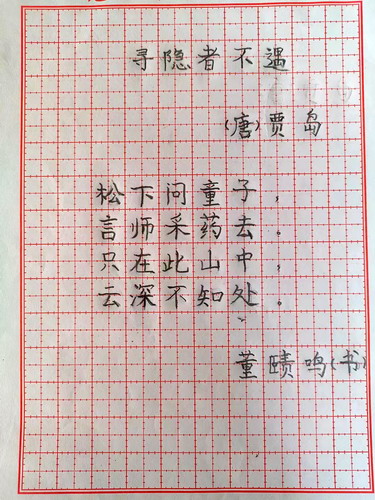 寻隐者不遇
(唐)贾岛
松下问童子，
言师采药去。
只在此山中，
云深不知处。
董赜鸣(书)